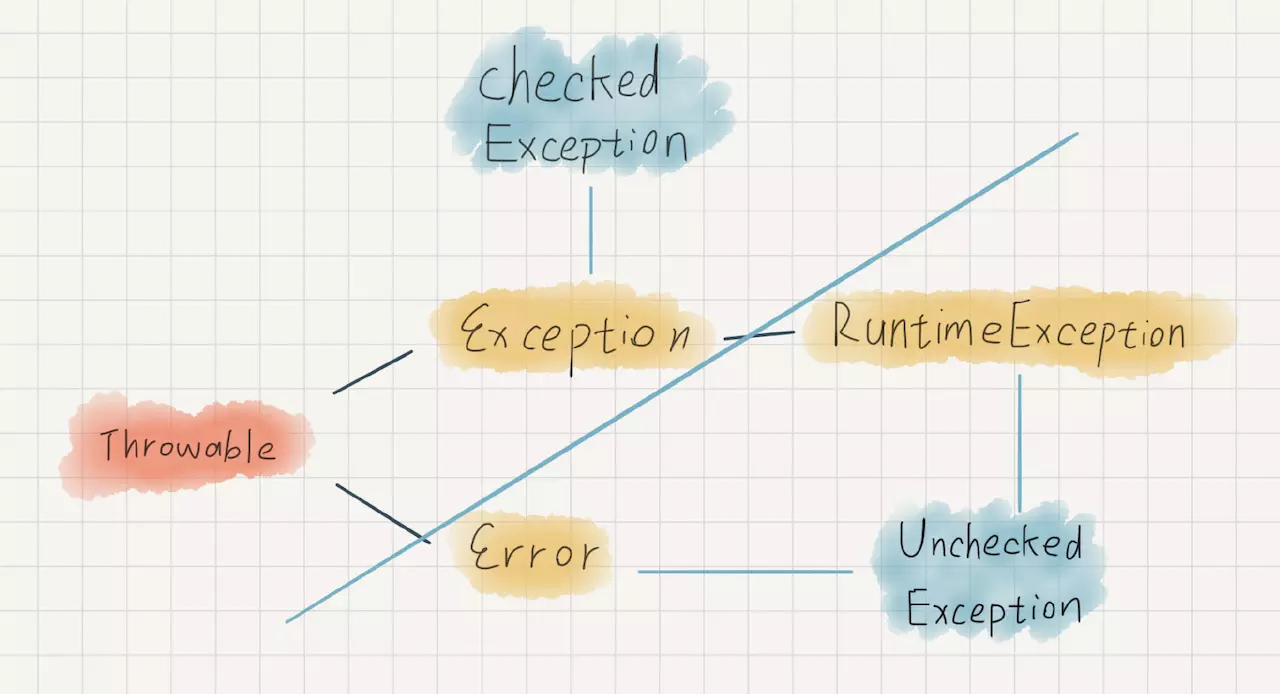 Checked
Exception
Exception
RuntimeException
Throwable
Error
Unchecked
Exception